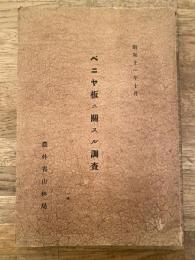 昭和十一年十月
ベニヤ板ニ關スル調査
農林省山林局